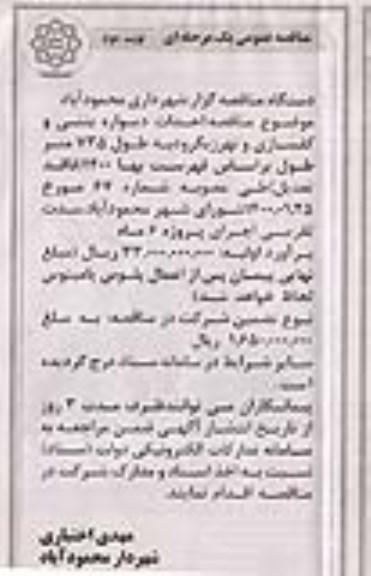 مناقصه عمومی یک مرحله ای نوبت دوم
دستگاه مناقصه گزار شهرداری محمودآباد
موضوع مناقصه احداث دیواره بتنی و
کفسازی و نهر زیکرودبه طول ۷۳۵ متر
طول براساس فهرست بها ۱۴۰۰ فاقد
تعدیل طی مصوبه شماره ۶۷ مورخ
شورای شهر محمودآباد مدت
تقریبی اجرای پروژه ۶ ماه
برآورد اولیه: ۳۳,۰۰۰,۰۰۰,۰۰۰ ریال (مبلغ
نهایی پیمان پس از اعمال پلوس یا مینوس
لحاظ خواهد شد)
نوع تضمین شرکت در مناقصه: به مبلغ
۱,۶۵۰,۰۰۰,۰۰۰ ریال
سایر شرایط در سامانه ستاد درج گردیده
است.
پیمانکاران می توانند ظرف مدت ۳ روز
از تاریخ انتشار آگهی ضمن مراجعه به
سامانه تدارکات الکترونیکی دولت (ستاد)
نسبت به اخذ اسناد و مدارک شرکت در
مناقصه اقدام نمایند.
مهدی اختیاری
شهردار محمود آباد